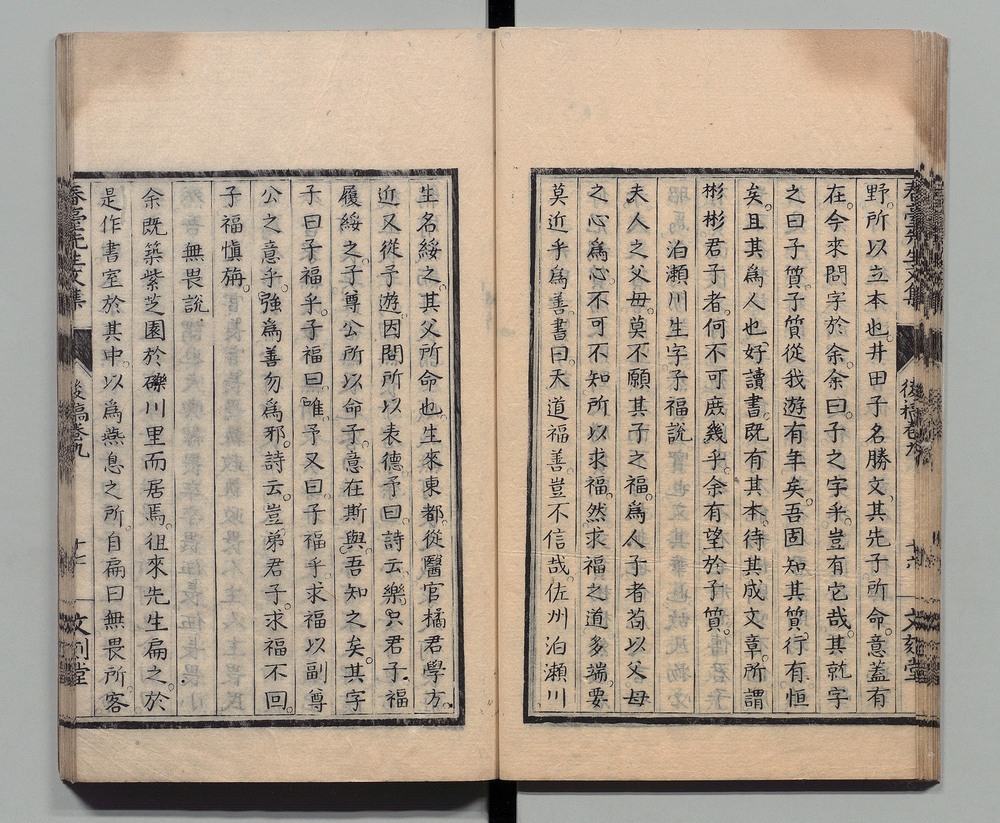 野所以立本也。井田子名勝文。其先子所命。意蓋有
在。今來問字於余。余曰。子之字乎。豈有它哉。其就字
之曰子質。子質從我遊有年矣。吾固知其質行有恒
矣。且其爲人也。好讀書。既有其本。待其成文章。所謂
彬彬君子者。何不可庶幾乎。余有望於子質。
泊瀬川生字子福説
夫人之父母。莫不願其子之福。爲人子者。苟以父母
之心爲心。不可不知所以求福。然求福之道多端。要
莫近乎爲善。書曰。天道福善。豈不信哉。佐州泊瀬川
生名綏之。其父所命也。生來東都。從醫官橘君學方。
近又從予遊。因問所以表德。予曰。詩云。樂只君子。福
履綏之。子尊公所以命子。意在斯與。吾知之矣。其字
子曰子福乎。子福曰。唯。予又曰。子福乎。求福以副尊
公之意乎。強爲善勿爲邪。詩云。豈弟君子。求福不回。
子福愼旃。
無畏説
余既築紫芝園於礫川里而居焉。徂來先生扁之。於
是作書室於其中。以爲燕息之所。自扁曰無畏所。客
春臺先生文集
後稿卷九
十六
文刻堂
春臺先生文集
後稿卷九
文刻堂